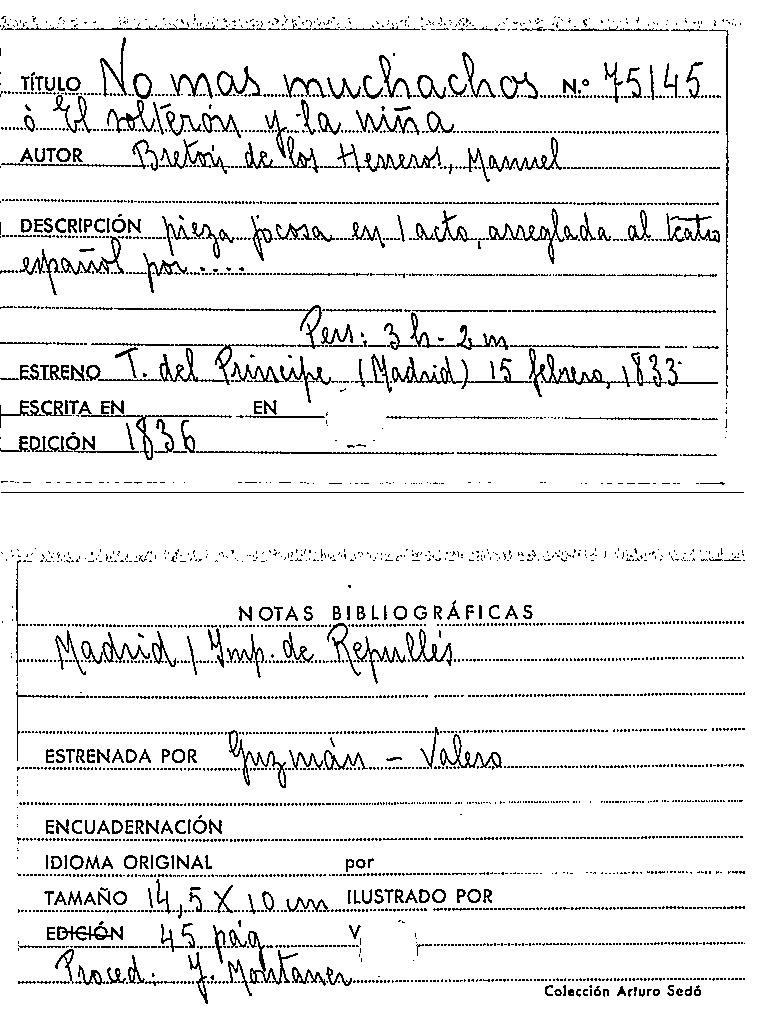 TÍTULO No mas muchachos N.º 75145
ò El solterón y la niña
AUTOR Bretón de los Herreros, Manuel
DESCRIPCIÓN pieza jocosa en 1 acto, arreglada al teatro
español por ....
Pers: 3 h - 2 m
ESTRENO T. del Príncipe (Madrid) 15 febrero, 1833
ESCRITA EN EN
EDICIÓN 1836
NOTAS BIBLIOGRÁFICAS
Madrid / Imp. de Repullés
ESTRENADA POR Guzmán - Valero
ENCUADERNACIÓN
IDIOMA ORIGINAL por
TAMAÑO 14,5 X 10 cm ILUSTRADO POR
EDICIÓN 45 pág V
Proced. Y. Montaner
Colección Arturo Sedó